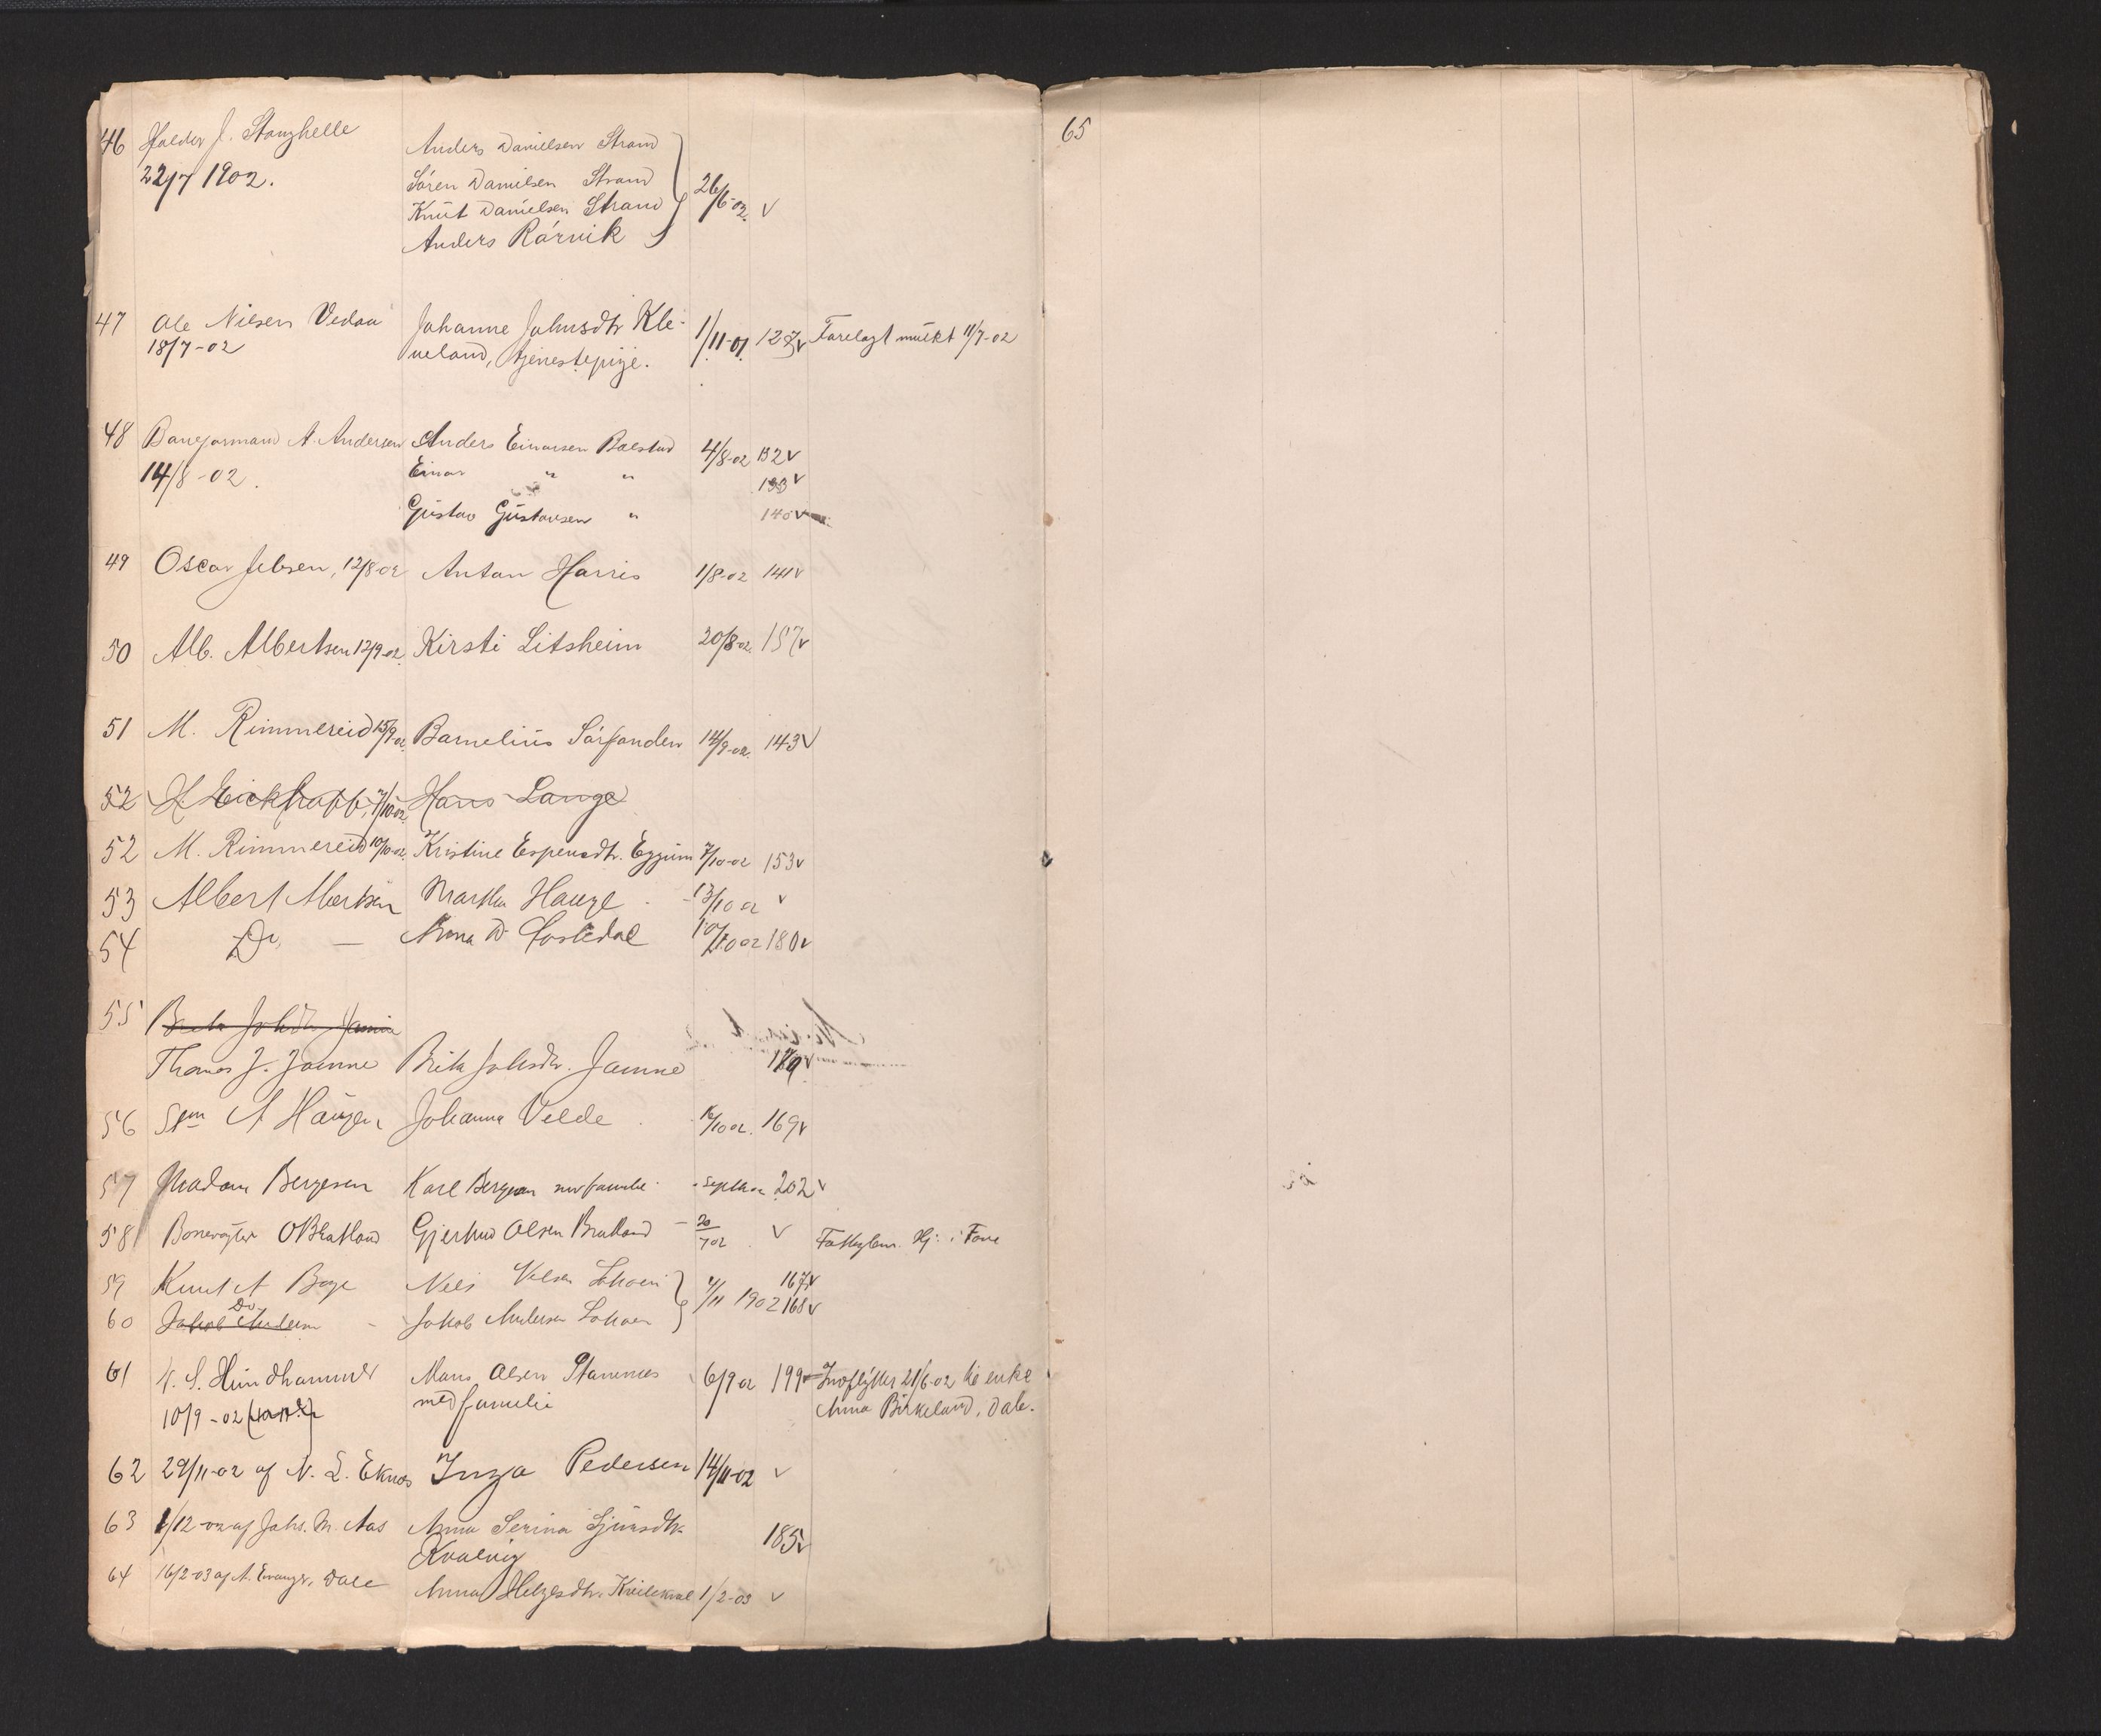 46 Haldor J. Stanghelle Anders Danielsen Strand
22/7 1902. Sören Danielsen Strand 26/6-02. v
Knut Danielsen Strand
Anders Rörvik
47 Ole Nilsen Vedaa Johanne Johnsdtr Kle- 1/11-01 127 v Forelagt mulkt 11/7-02
18/7-02 veland, tjenestepige.
48 Baneformand A. Andersen Anders Einarsen Bolstad 4/8-02 132 v
14/8-02. Einar " " 133 v
Gustav Gustavsen " 140 v
49 Oscar Jebsen, 12/8-02 Anton Harris 1/8-02 141 v
50 Alb. Albertsen 12/9-02. Kirsti Litsheim 20/8-02. 157 v
51 M. Rimmereid 15/9-02. Barnelius Sörfonden 14/9-02. 143 v
52 H. Eickhoff, 7/10-02. Hans Lange
52 M. Rimmereid 10/10-02. Kristine Espensdtr. Eggum 7/10-02 153 v
53 Albert Albertsen Martha Hauge 13/10 02 v
54 Do, — Anna D. 10/10 02 180 v
55 Brita Johsdtr Jamne
Thomas J. Jamne Brita Johsdtr. Jamne v
56 A Haugen Johanna Velde /10 02. 169 v
57 Madam Bergesen Karl Bergesen m familie Septbr 02 202 v
58 O Bratland Gjertrud Olsen Bratland 20/7 02 v i Fane
59 Knut A Boge Nils 167 v
4/11 1902 168 v
60 Do Jakob Andersen Jakob Andersen
61 Hundhammer Mons Olsen Stamnes 6/9 02 199 Indflyttet 21/6-02 til enke
10/9-02 med familie Anna Birkeland, Dale.
62 29/11-02 af N. L. Eknes Inga Pedersen 14/11-02 v
63 1/12-02 af Johs. M. Aas Anna Serina Sjursdtr. 185 v
Kvalvig
64 16/2-03 af A. Evanger, Dale Anna Helgesdtr. Kvilekval 1/2-03 v
65